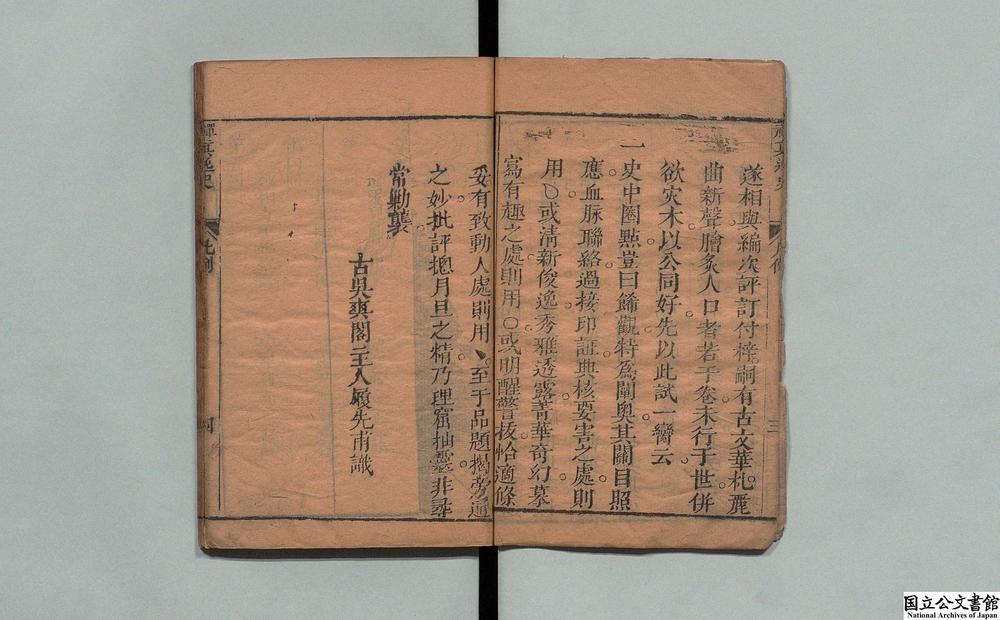 遂相與編次評訂付梓嗣有古文華札麗
曲新聲膾炙人口者若干卷未行于世併
欲灾木以公同好先以此試一臠云
一史中圈點豈曰飾觀特爲闡奥其關目照
應血脉聯絡過接印証典核要害之處則
用〇或清新俊逸秀雅透露菁華奇幻摹
寫有趣之處則用〇或明醒警拔恰適條
妥有致動人處則用丶至于品題揭旁通
之妙批評總月旦之精乃理窟抽靈非尋
常勦襲
古吳爽閣主人履先甫識
三
禪真逸史
凡例
四
国立公文書館
National Archives of Japan